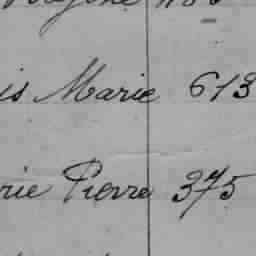 is Marie 613
rie Pierre 375